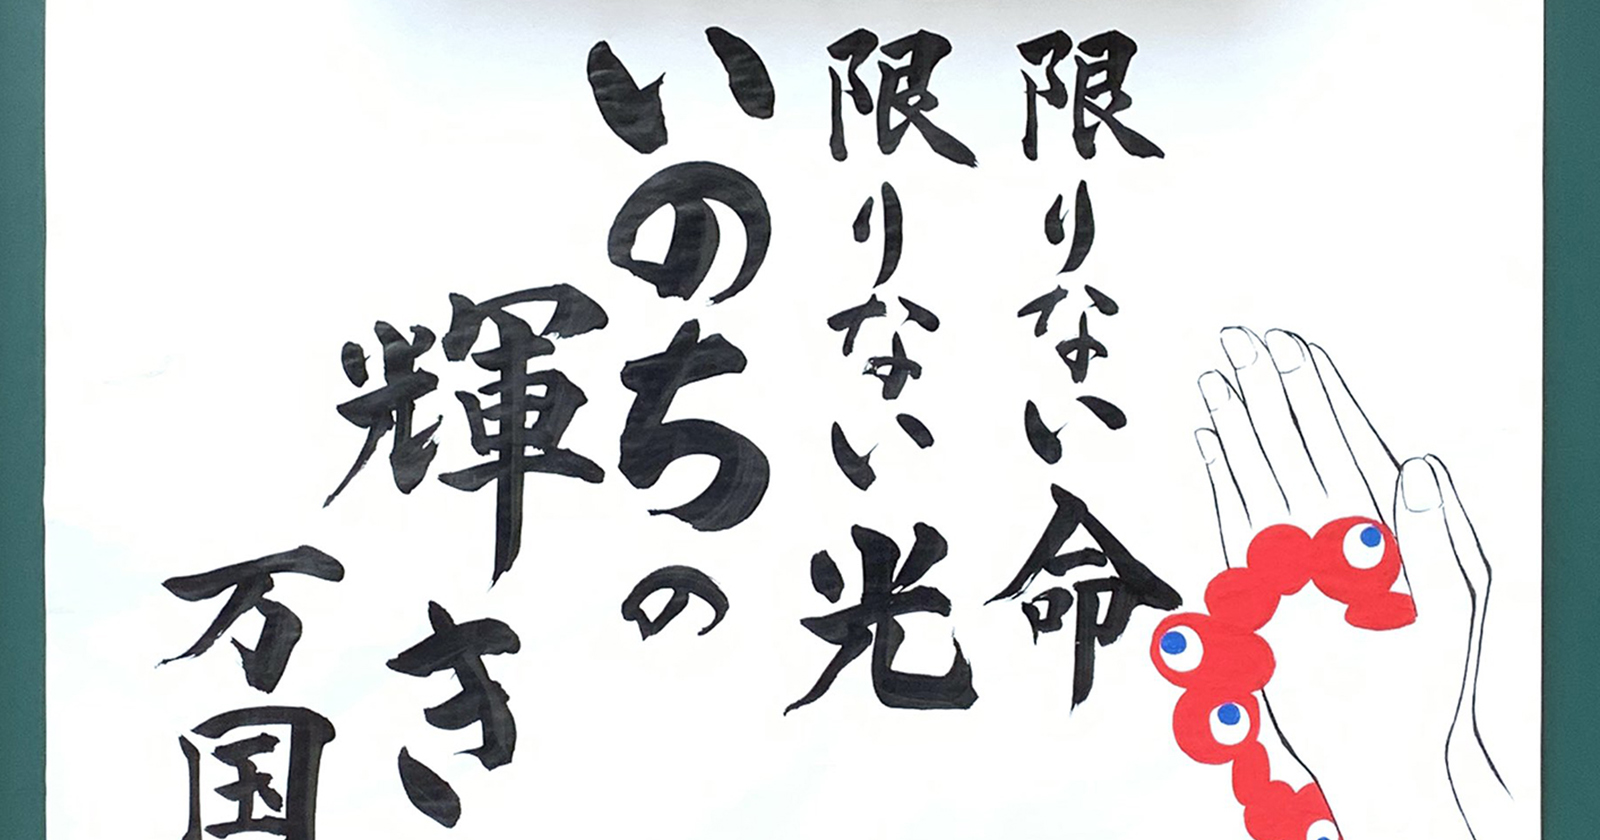 限りない命
限りない光
いのちの
輝き
万国